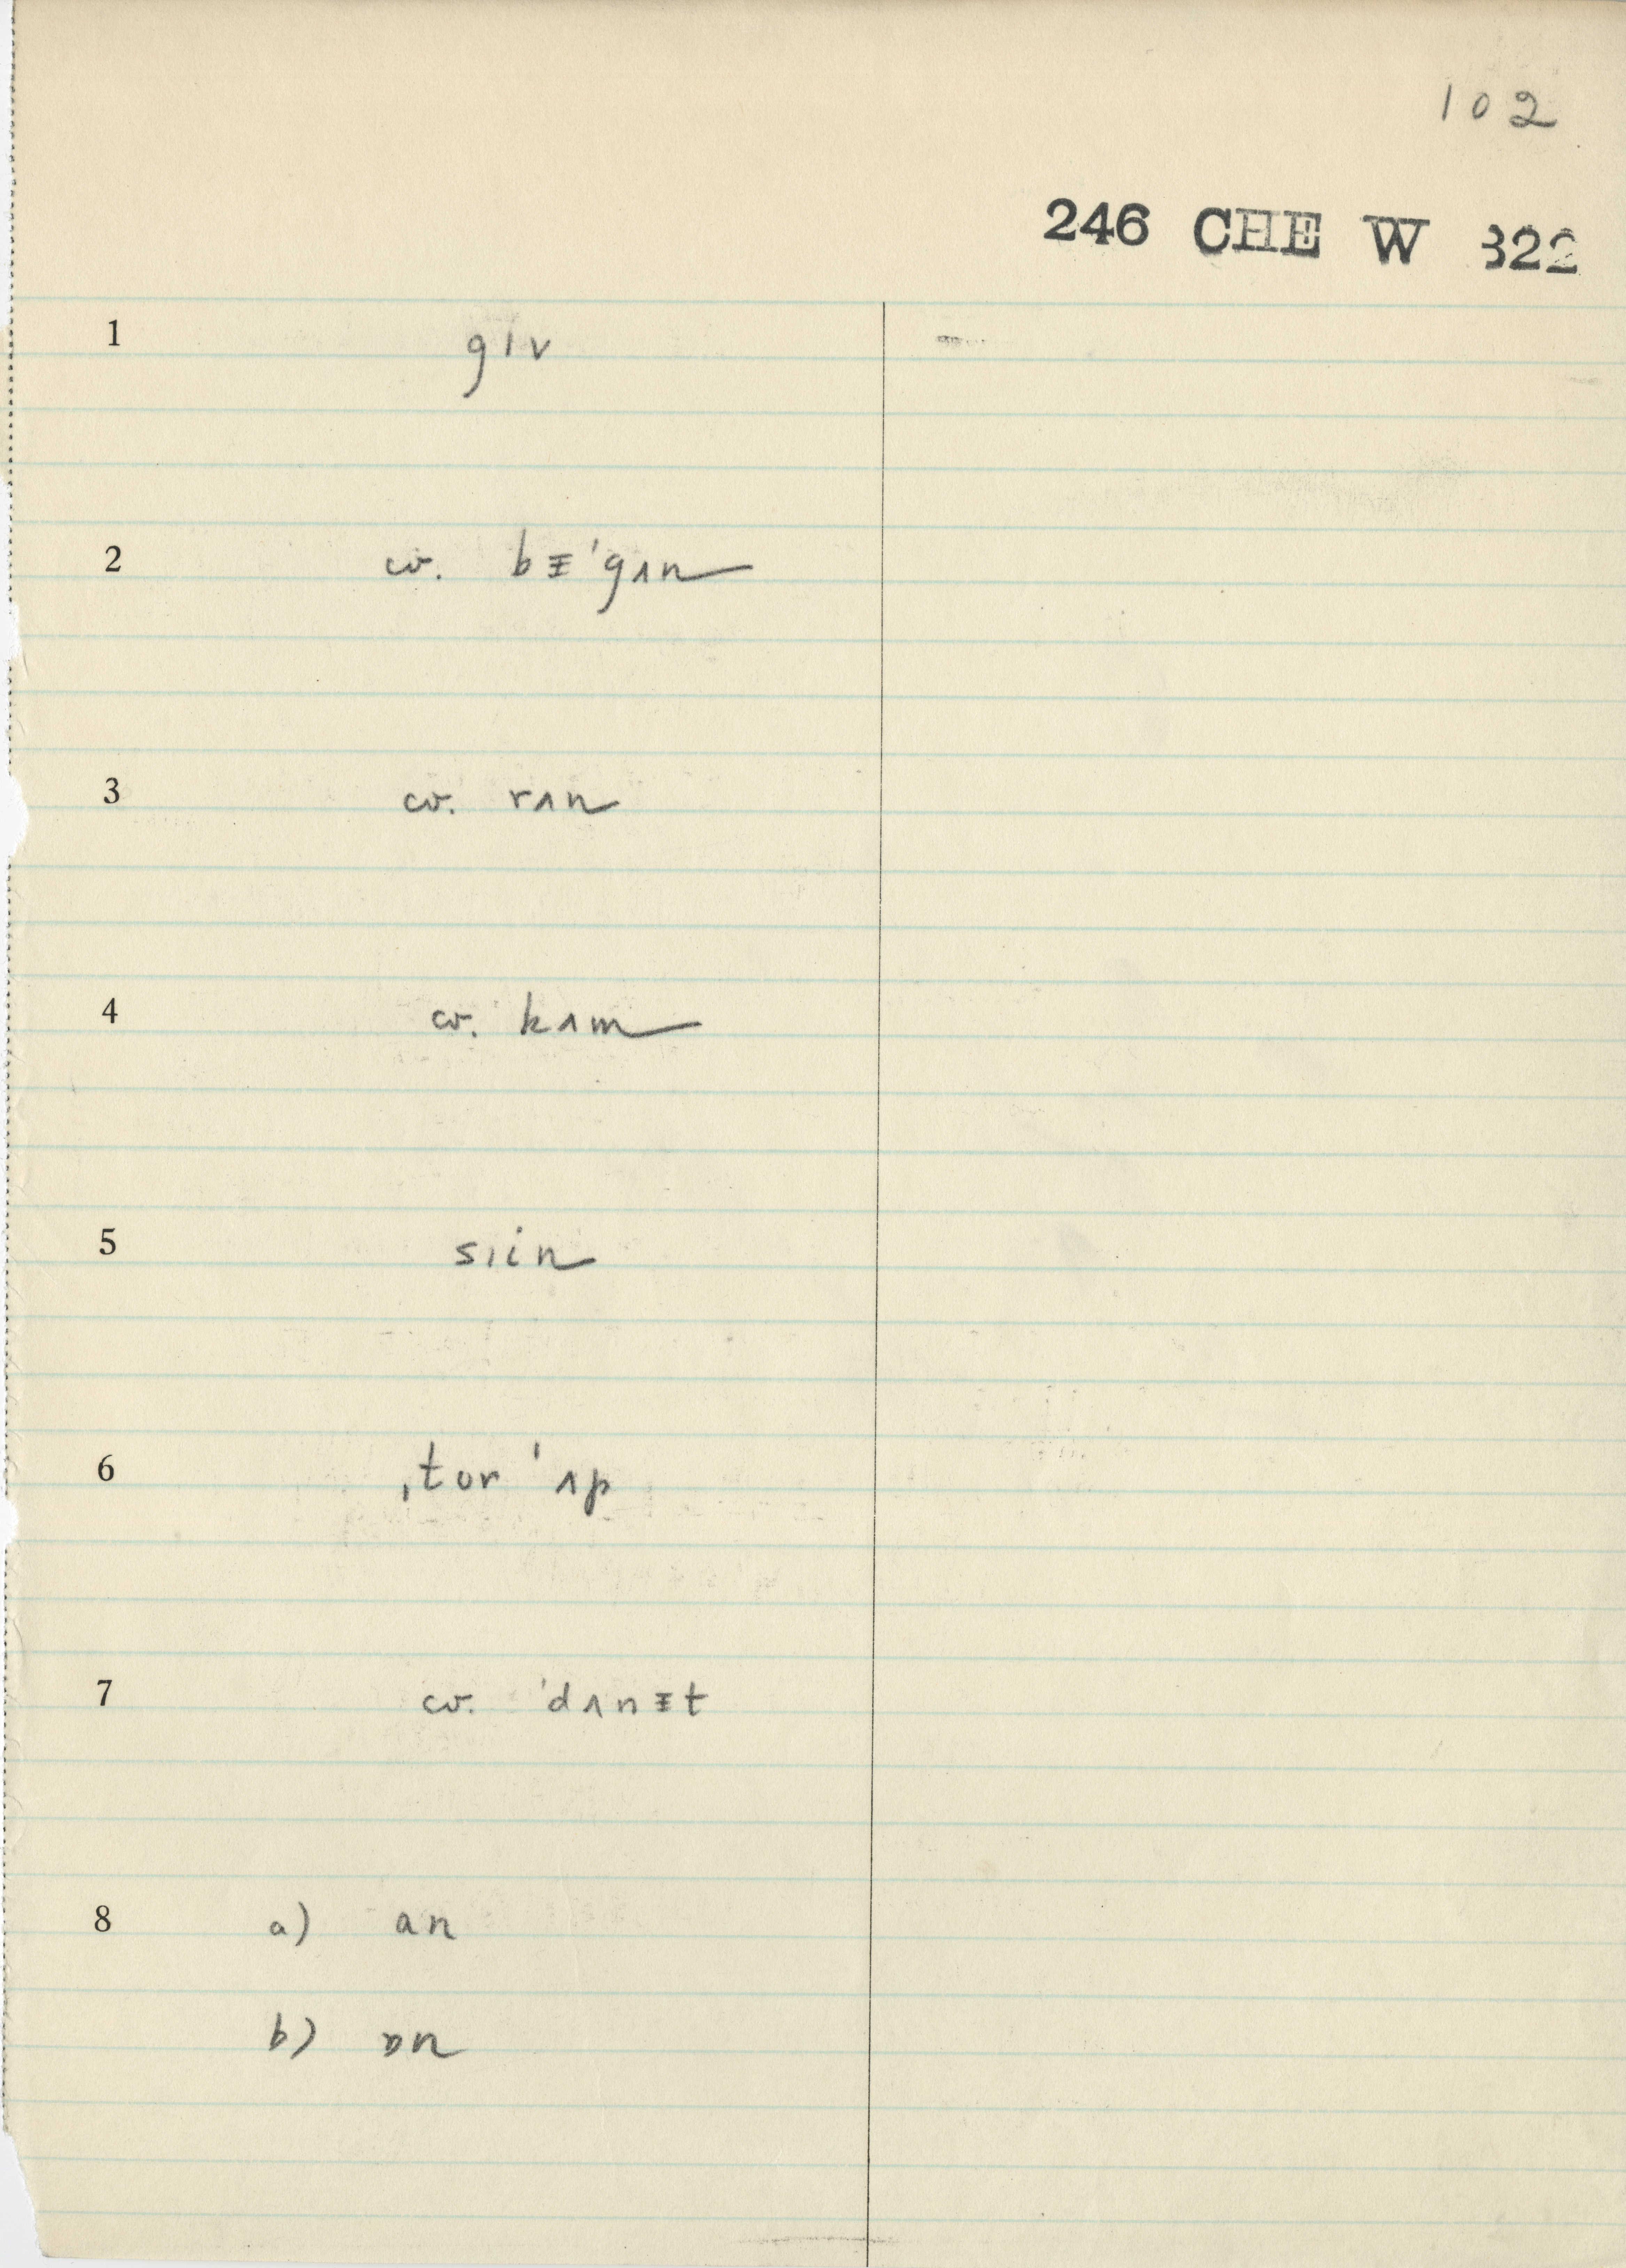 102
246 CHE W 322
1 gɪv
2 cv. bᵻˈgʌn
3 cv. rʌn
4 cv. kʌm
5 sɪin
6 ˌtɔr ˈʌp
7 cv. ˈdʌnᵻt
8 a) an
b) ɒn